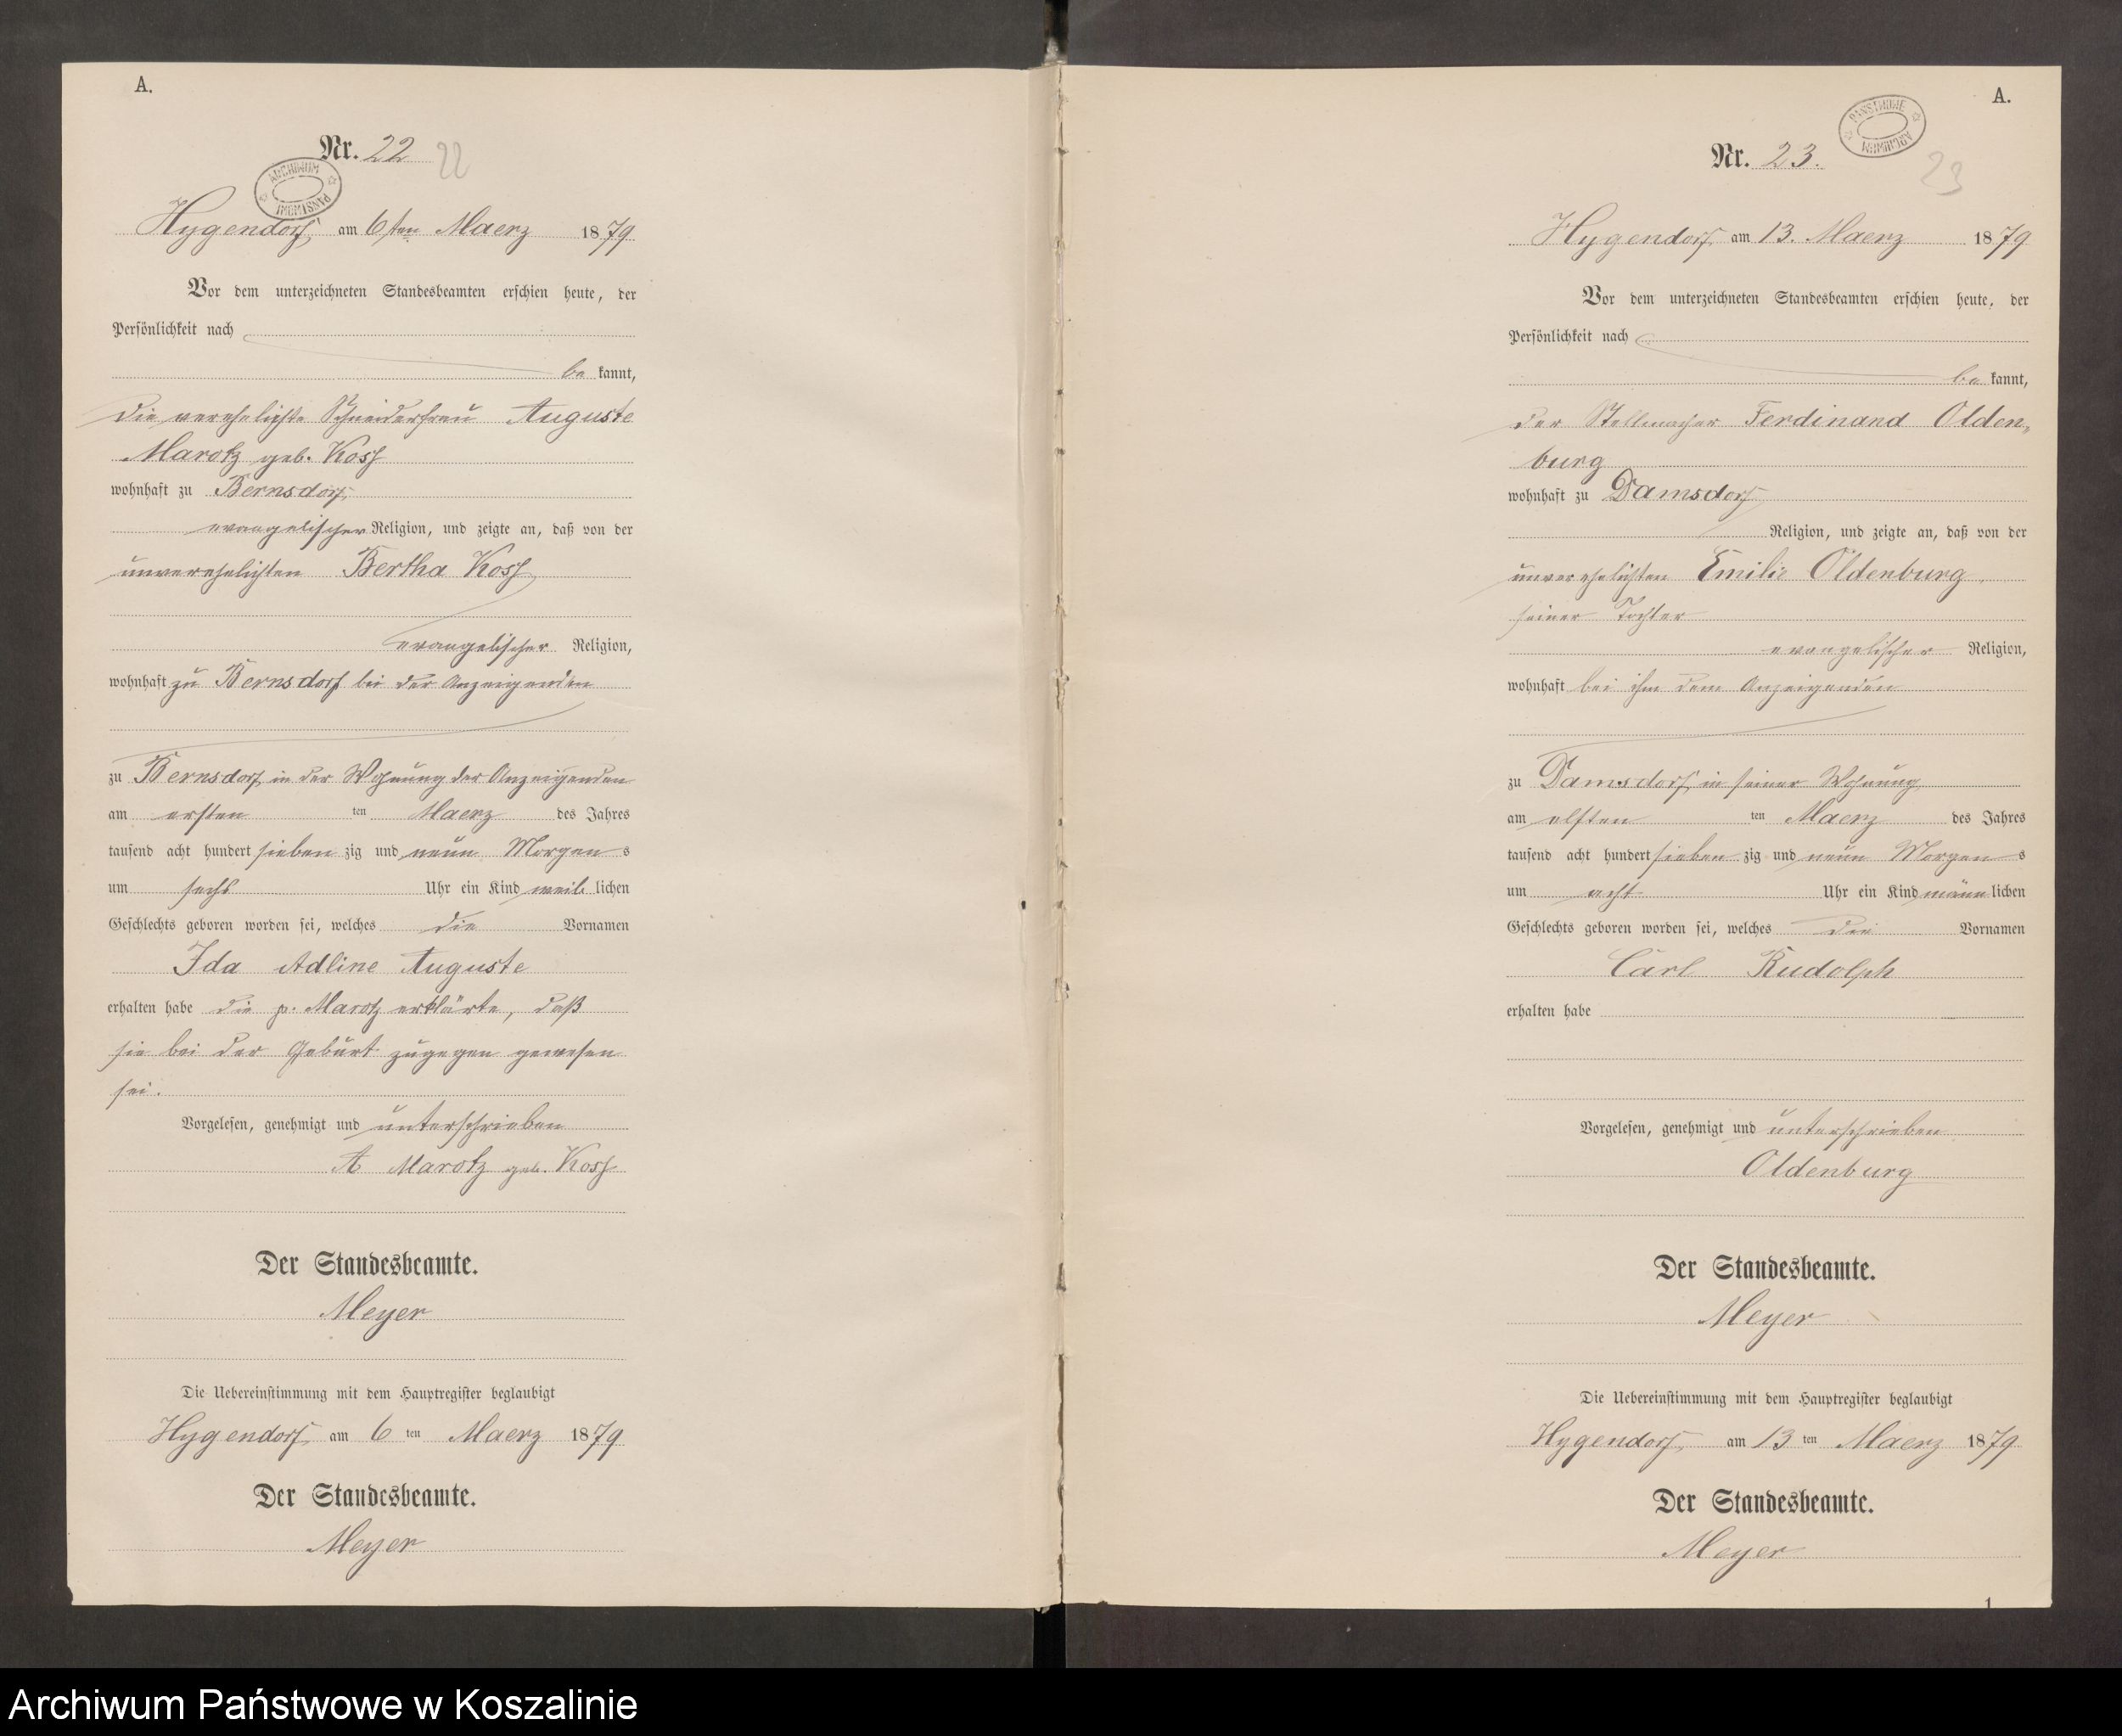 A.
Nr. 22 22
ARCHIWUM PAŃSTWOWE
Hygendorf, am 6ten Maerz 1879
Vor dem unterzeichneten Standesbeamten erschien heute, der
Persönlichkeit nach
be kannt,
die verehelichte Schneiderfrau Auguste
Marotz geb. Koss
wohnhaft zu Bernsdorf
evangelischer Religion, und zeigte an, daß von der
unverehelichten Bertha Koss
evangelischer Religion,
wohnhaft zu Bernsdorf bei der Anzeigenden
zu Bernsdorf, in der Wohnung der Anzeigenden
am ersten ten Maerz des Jahres
tausend acht hundert sieben zig und neun Morgen s
um sechs Uhr ein Kind weib lichen
Geschlechts geboren worden sei, welches die Vornamen
Ida Adline Auguste
erhalten habe die p. Marotz erklärte, daß
sie bei der Geburt zugegen gewesen
sei.
Vorgelesen, genehmigt und unterschrieben
A Marotz geb. Koss
Der Standesbeamte.
Meyer
Die Uebereinstimmung mit dem Hauptregister beglaubigt
Hygendorf, am 6 ten Maerz 1879
Der Standesbeamte.
Meyer
A.
ARCHIWUM PAŃSTWOWE
Nr. 23. 23
Hygendorf, am 13. Maerz 1879
Vor dem unterzeichneten Standesbeamten erschien heute, der
Persönlichkeit nach
be kannt,
der Stellmacher Ferdinand Olden,
burg
wohnhaft zu Damsdorf
Religion, und zeigte an, daß von der
unverehelichten Emilie Oldenburg,
seiner Tochter
evangelischer Religion,
wohnhaft bei ihm dem Anzeigenden
zu Damsdorf, in seiner Wohnung
am elften ten Maerz des Jahres
tausend acht hundert sieben zig und neun Morgen s
um acht Uhr ein Kind männ lichen
Geschlechts geboren worden sei, welches die Vornamen
Carl Rudolph
erhalten habe
Vorgelesen, genehmigt und unterschrieben
Oldenburg
Der Standesbeamte.
Meyer
Die Uebereinstimmung mit dem Hauptregister beglaubigt
Hygendorf, am 13 ten Maerz 1879
Der Standesbeamte.
Meyer
1
Archiwum Państwowe w Koszalinie